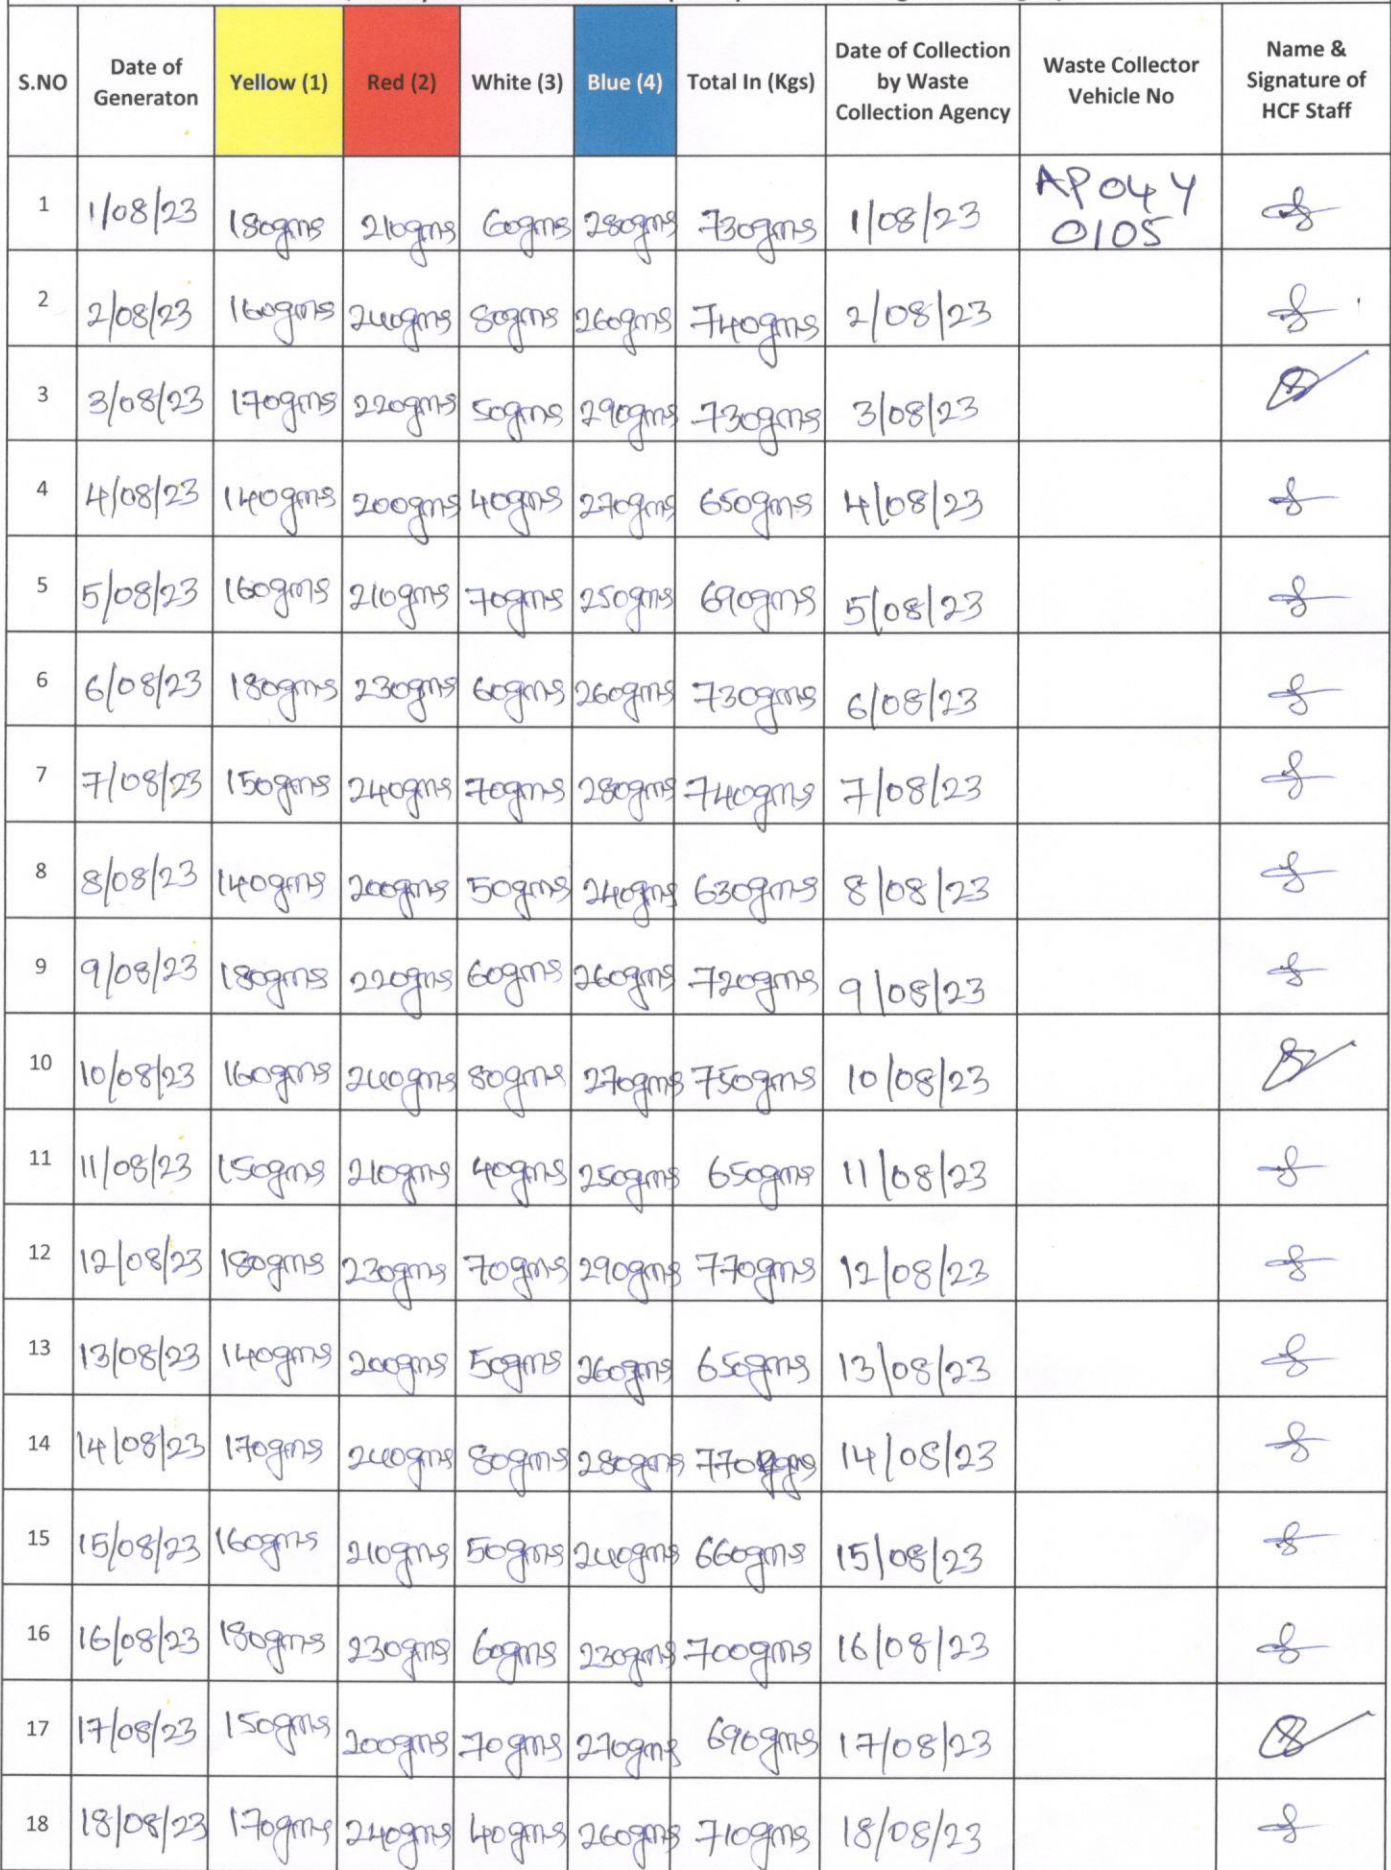 S.NO Date of Generaton Yellow (1) Red (2) White (3) Blue (4) Total In (Kgs) Date of Collection by Waste Collection Agency Waste Collector Vehicle No Name & Signature of HCF Staff
1 1/08/23 180gms 210gms 60gms 280gms 730gms 1/08/23 AP04Y 0105
2 2/08/23 160gms 240gms 80gms 260gms 740gms 2/08/23
3 3/08/23 170gms 220gms 50gms 290gms 730gms 3/08/23
4 4/08/23 140gms 200gms 40gms 270gms 650gms 4/08/23
5 5/08/23 160gms 210gms 70gms 250gms 690gms 5/08/23
6 6/08/23 180gms 230gms 60gms 260gms 730gms 6/08/23
7 7/08/23 150gms 240gms 70gms 280gms 740gms 7/08/23
8 8/08/23 140gms 200gms 50gms 240gms 630gms 8/08/23
9 9/08/23 180gms 220gms 60gms 260gms 720gms 9/08/23
10 10/08/23 160gms 240gms 80gms 270gms 750gms 10/08/23
11 11/08/23 150gms 210gms 40gms 250gms 650gms 11/08/23
12 12/08/23 180gms 230gms 70gms 290gms 770gms 12/08/23
13 13/08/23 140gms 200gms 50gms 260gms 650gms 13/08/23
14 14/08/23 170gms 240gms 80gms 280gms 770gms 14/08/23
15 15/08/23 160gms 210gms 50gms 240gms 660gms 15/08/23
16 16/08/23 180gms 230gms 60gms 230gms 700gms 16/08/23
17 17/08/23 150gms 200gms 70gms 270gms 690gms 17/08/23
18 18/08/23 170gms 240gms 40gms 260gms 710gms 18/08/23